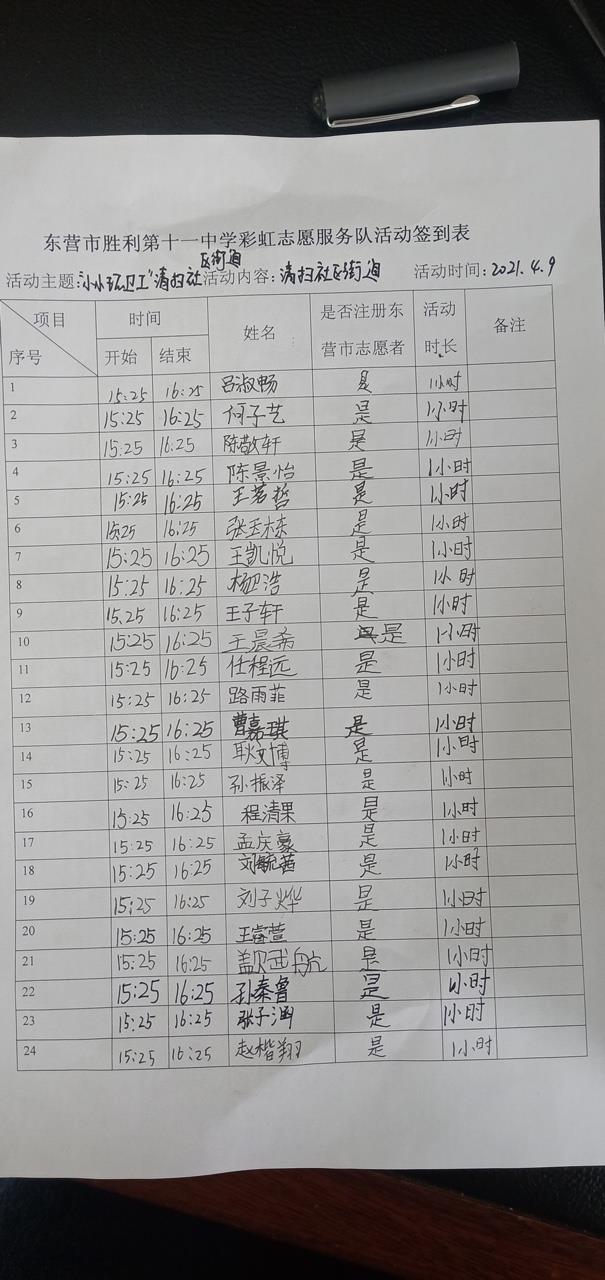 东营市胜利第十一中学彩虹志愿服务队活动签到表
活动主题:"小小环卫工"清扫社区街道 活动内容:清扫社区街道 活动时间:2021.4.9
项目 序号 时间 开始 结束 姓名 是否注册东营市志愿者 活动时长 备注
1 15:25 16:25 吕淑畅 是 1小时
2 15:25 16:25 何子艺 是 1小时
3 15:25 16:25 陈敬轩 是 1小时
4 15:25 16:25 陈景怡 是 1小时
5 15:25 16:25 王茗哲 是 1小时
6 15:25 16:25 张玉栋 是 1小时
7 15:25 16:25 王凯悦 是 1小时
8 15:25 16:25 杨浩 是 1小时
9 15:25 16:25 王子轩 是 1小时
10 15:25 16:25 王晨希 是 1小时
11 15:25 16:25 任程远 是 1小时
12 15:25 16:25 路雨菲 是 1小时
13 15:25 16:25 曹嘉琪 是 1小时
14 15:25 16:25 耿文博 是 1小时
15 15:25 16:25 孙振泽 是 1小时
16 15:25 16:25 程清果 是 1小时
17 15:25 16:25 孟庆豪 是 1小时
18 15:25 16:25 刘毓茜 是 1小时
19 15:25 16:25 刘子烨 是 1小时
20 15:25 16:25 王睿萱 是 1小时
21 15:25 16:25 盖贝武航 是 1小时
22 15:25 16:25 孙秦鲁 是 1小时
23 15:25 16:25 张子涵 是 1小时
24 15:25 16:25 赵楷翔 是 1小时